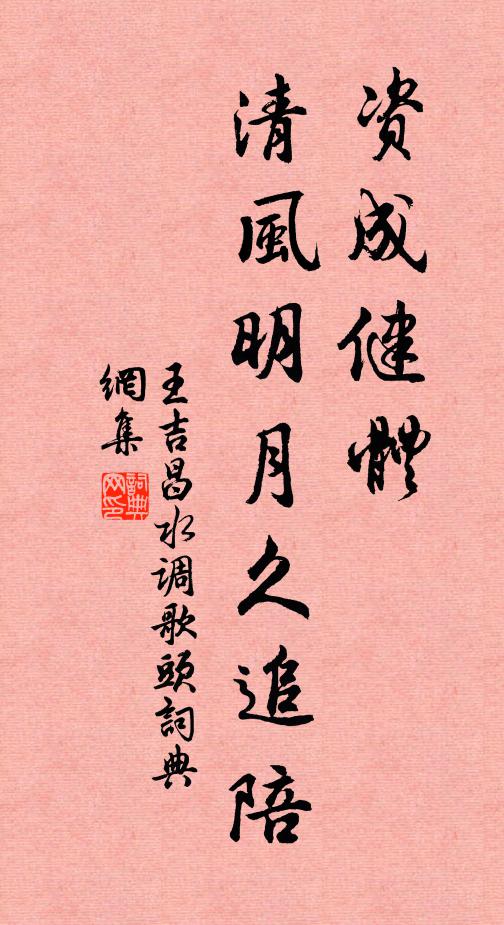 资成健體
清風明月久追陪
王吉昌水调歌頭詞典
網集
詞典
网印